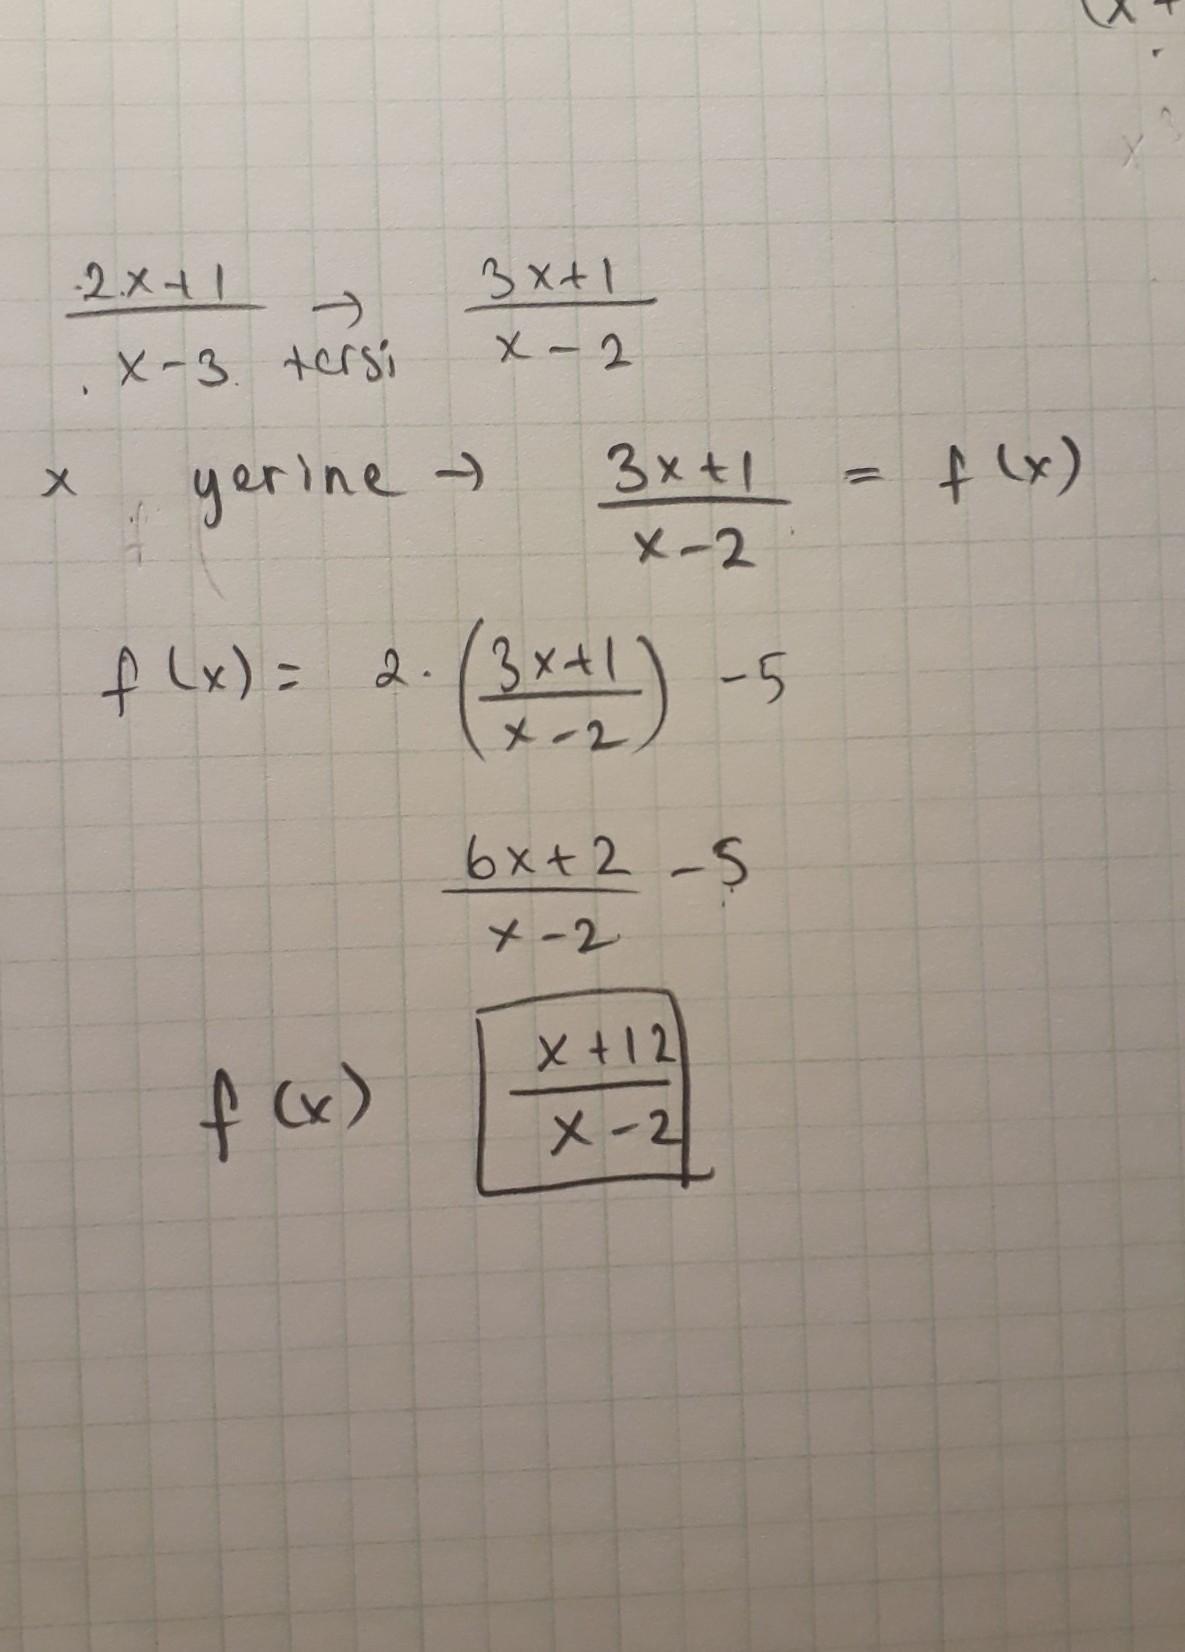 (x +
x³
2x+1 / x-3 → tersi 3x+1 / x-2
x yerine → 3x+1 / x-2 = f(x)
f(x) = 2. (3x+1 / x-2) -5
6x+2 / x-2 -5
f(x) x+12 / x-2